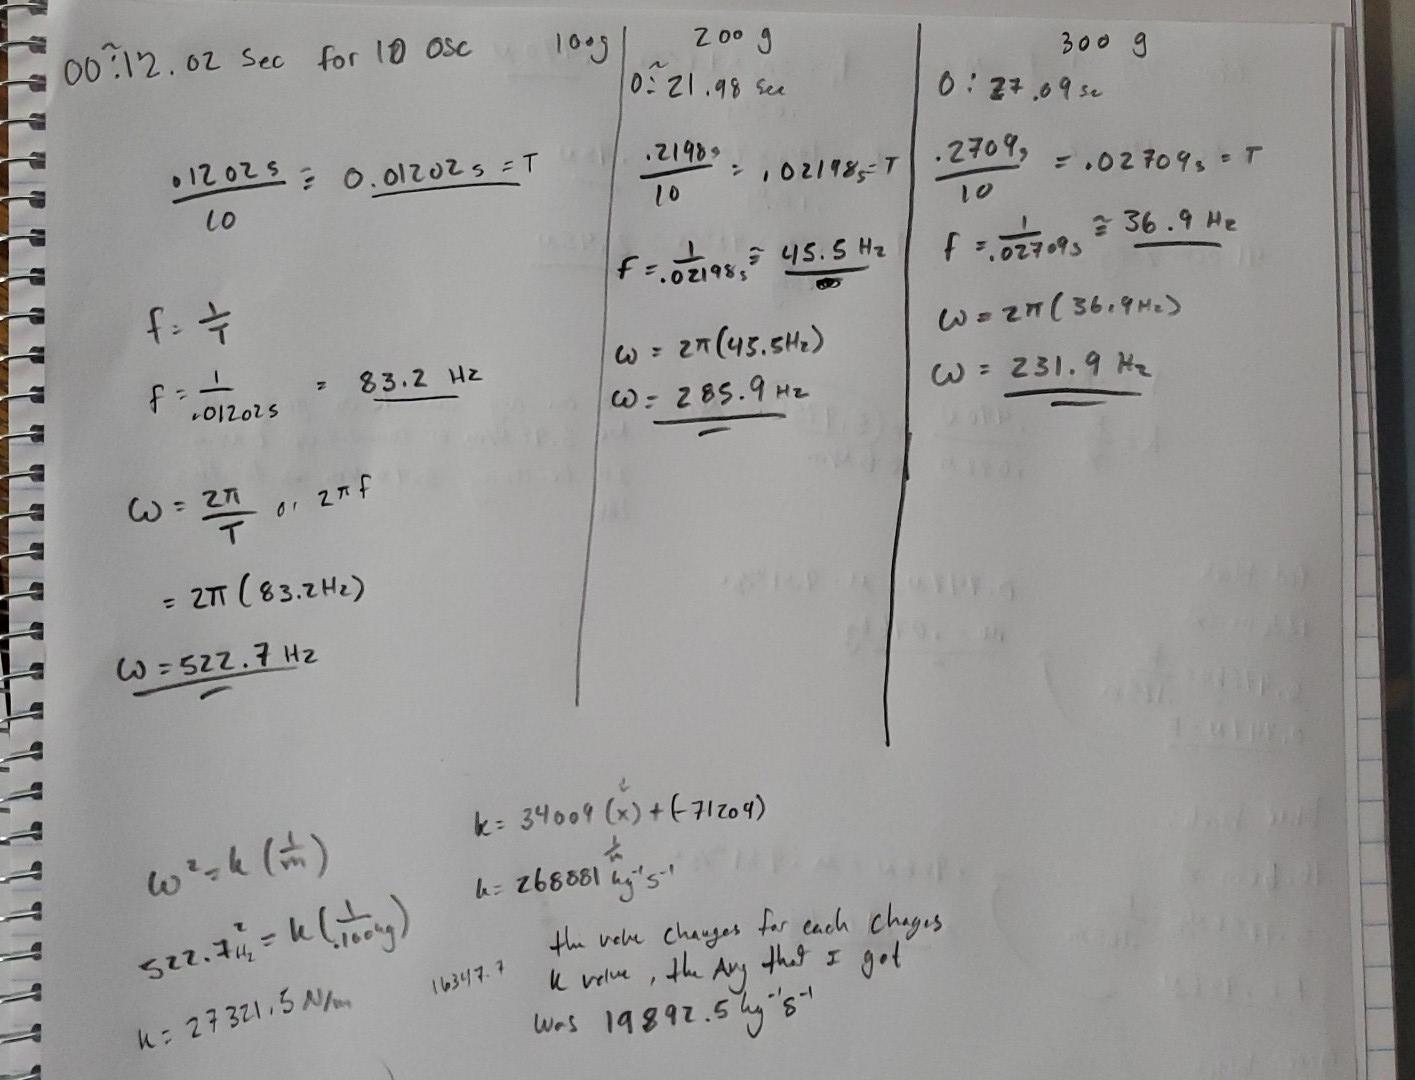 00:12.02 Sec for 10 osc 100g
.1202s / 10 = 0.01202s = T
f = 1/T
f = 1/.01202s = 83.2 Hz
ω = 2π/T or 2πf
= 2π(83.2Hz)
ω = 522.7 Hz
200 g
0:21.98 sec
.2198s / 10 = .02198s = T
f = 1/.02198s ≅ 45.5 Hz
ω = 2π(45.5Hz)
ω = 285.9 Hz
300 g
0:27.09 sec
.2709s / 10 = .02709s = T
f = 1/.02709s ≅ 36.9 Hz
ω = 2π(36.9Hz)
ω = 231.9 Hz
ω² = k(1/m)
522.7Hz² = k(1/.100kg)
k = 27321.5 N/m
k = 34009(x) + (-71209)
1/m
k = 268881 kg⁻¹s⁻¹
16347.7
the value changes for each chages
k value, the Avg that I got
was 19892.5 kg⁻¹s⁻¹